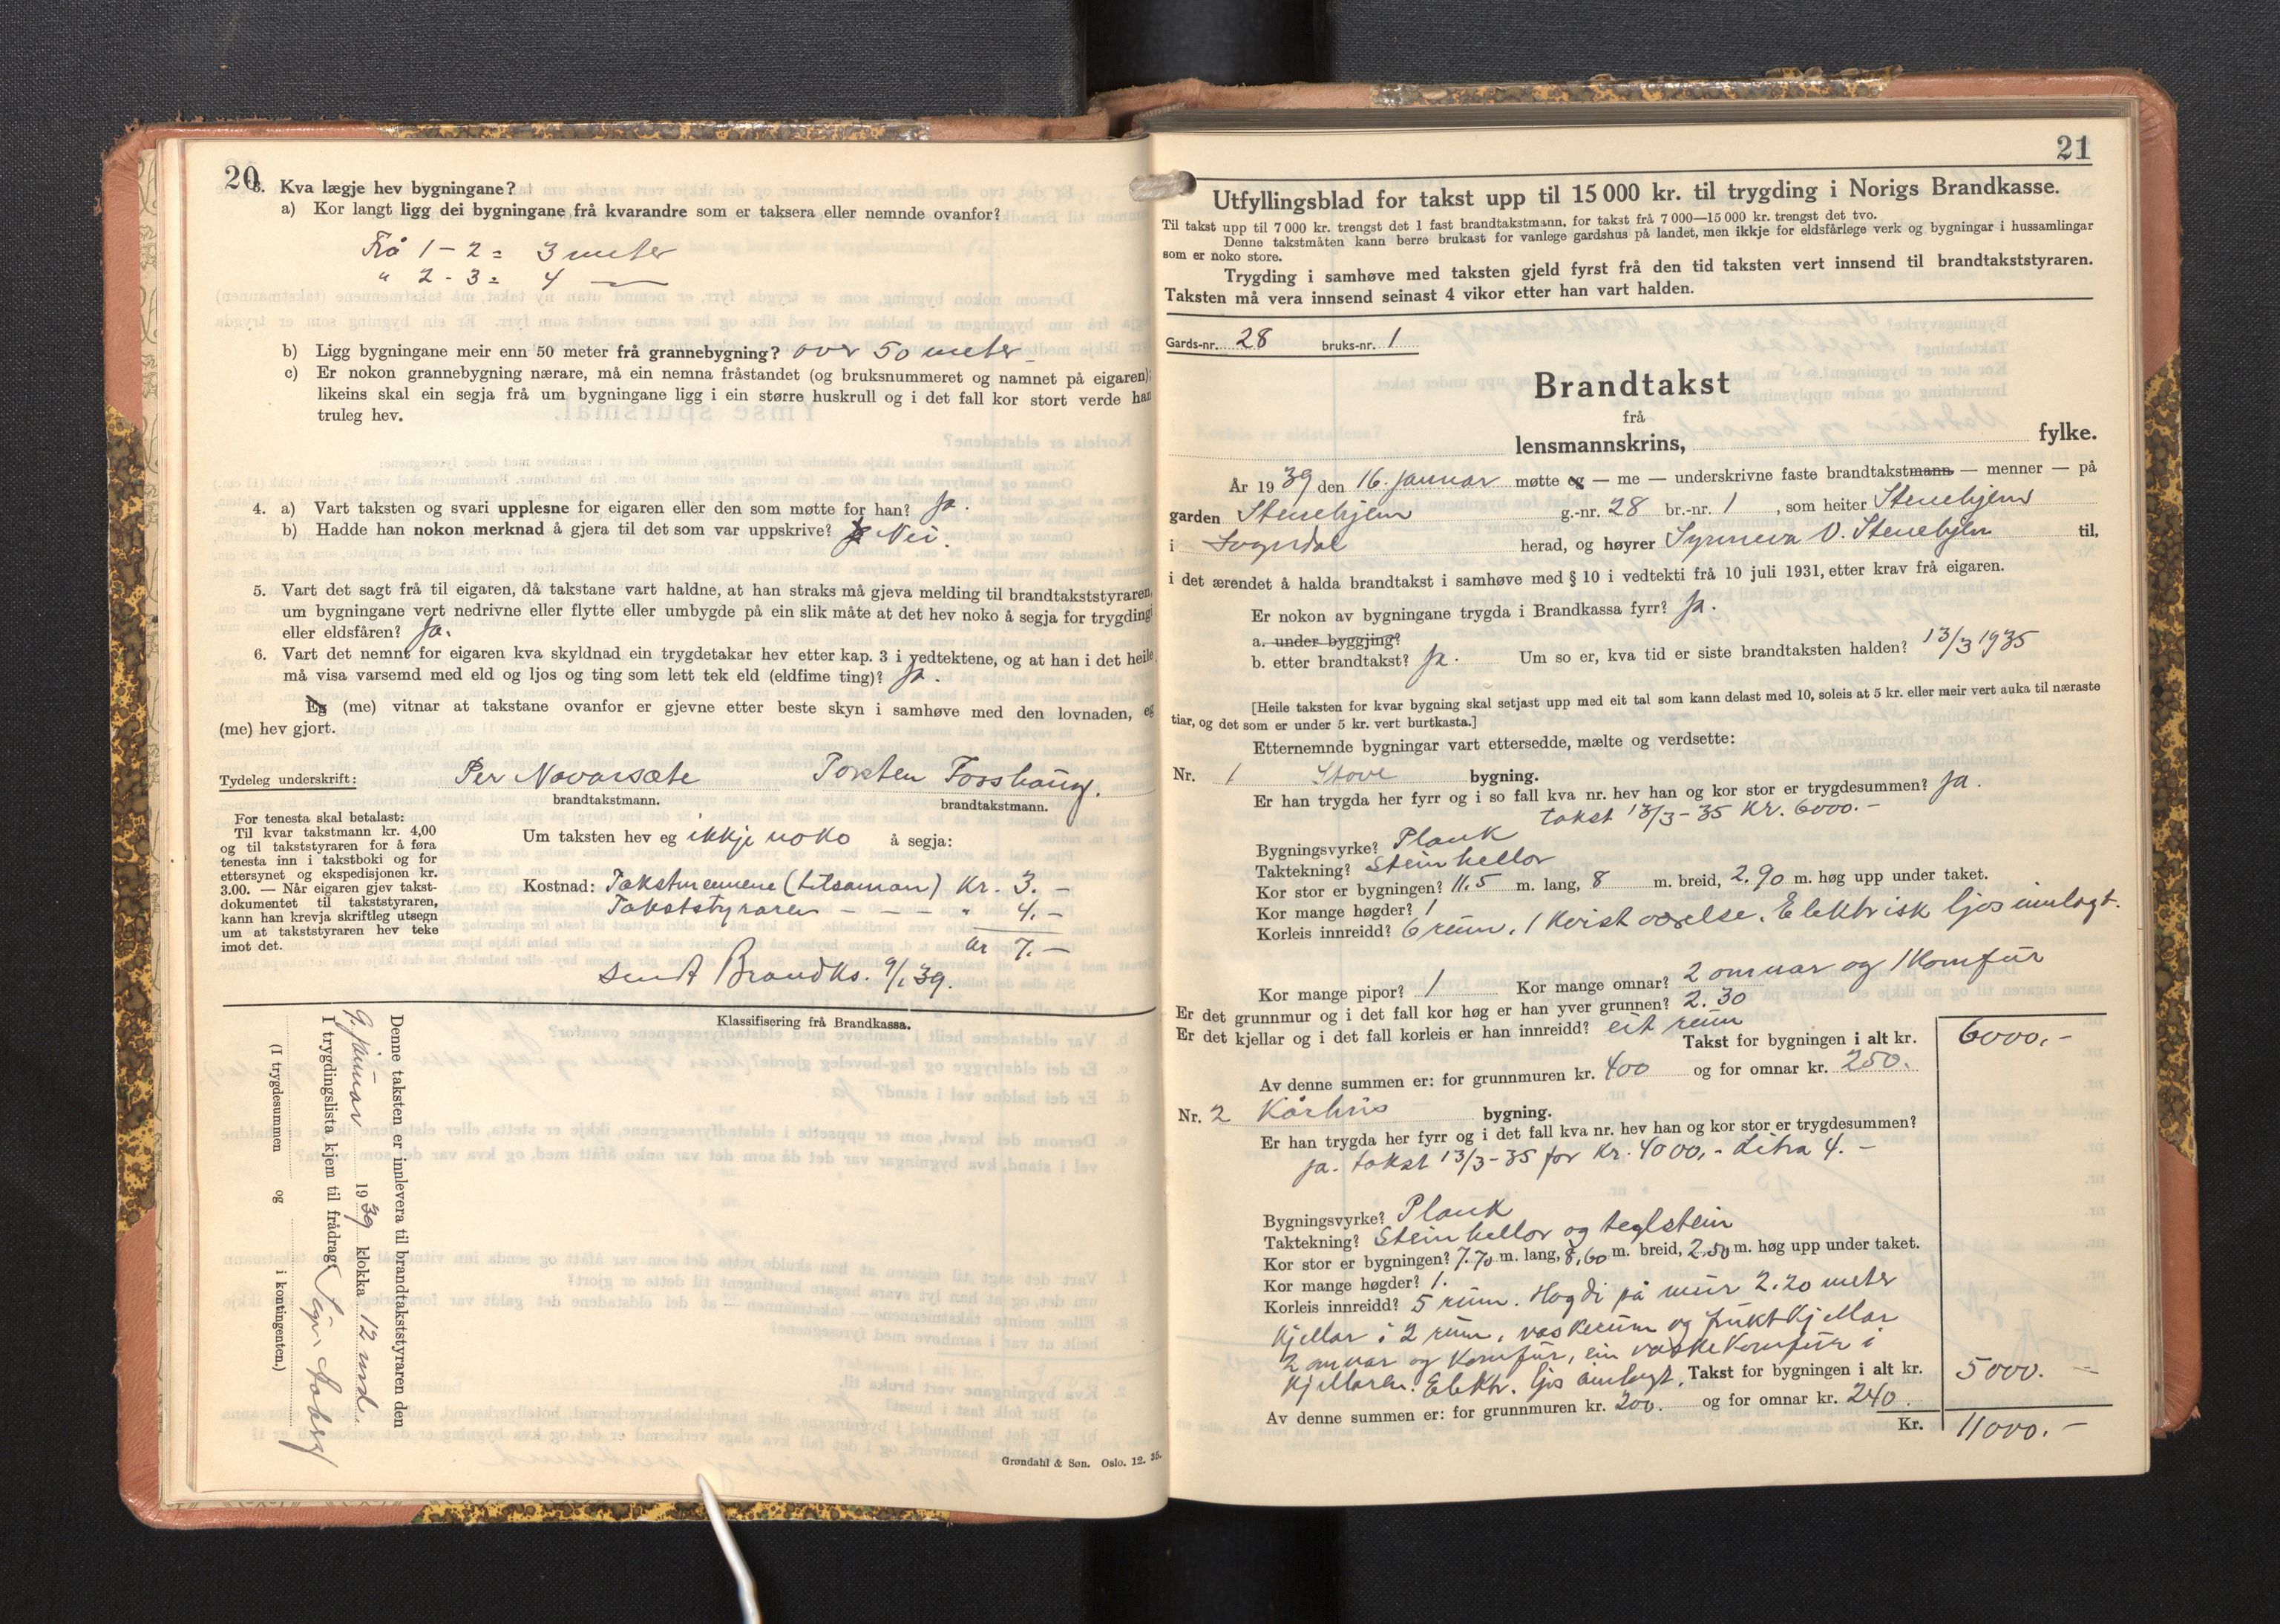 20
3. Kva lægje hev bygningane?
a) Kor langt ligg dei bygningane frå kvarandre som er taksera eller nemnde ovanfor?
Frå 1 - 2 = 3 meter
" 2 - 3 = 4 —
b) Ligg bygningane meir enn 50 meter frå grannebygning? over 50 meter
c) Er nokon grannebygning nærare, må ein nemna fråstandet (og bruksnummeret og namnet på eigaren);
likeins skal ein segja frå um bygningane ligg i ein større huskrull og i det fall kor stort verde han
truleg hev.
4. a) Vart taksten og svari upplesne for eigaren eller den som møtte for han? Ja.
b) Hadde han nokon merknad å gjera til det som var uppskrive? Nei.
5. Vart det sagt frå til eigaren, då takstane vart haldne, at han straks må gjeva melding til brandtakststyraren,
um bygningane vert nedrivne eller flytte eller umbygde på ein slik måte at det hev noko å segja for trygding
eller eldsfåren? Ja.
6. Vart det nemnt for eigaren kva skyldnad ein trygdetakar hev etter kap. 3 i vedtektene, og at han i det heile
må visa varsemd med eld og ljos og ting som lett tek eld (eldfime ting)? Ja.
Eg (me) vitnar at takstane ovanfor er gjevne etter beste skyn i samhøve med den lovnaden, eg
(me) hev gjort.
Tydeleg underskrift: Per Navarsete Torsten Fosshaug.
brandtakstmann. brandtakstmann.
For tenesta skal betalast:
Til kvar takstmann kr. 4,00
og til takststyraren for å føra
tenesta inn i takstboki og for
ettersynet og ekspedisjonen kr.
3.00. — Når eigaren gjev takst-
dokumentet til takststyraren,
kann han krevja skriftleg utsegn
um at takststyraren hev teke
imot det.
Um taksten hev eg ikkje noko å segja:
Kostnad: Takstmennene (tilsaman) Kr. 3. —
Takststyraren - - - " 4. —
Kr 7. —
Sendt Brandks. 9/1 39.
Klassifisering frå Brandkassa.
Denne taksten er innlevera til brandtakststyraren den
9. januar 1939 klokka 12 md.
I trygdingslista kjem til frådrag:
(I trygdesummen og i kontingenten.)
Grøndahl & Søn. Oslo. 12. 35.
21
Utfyllingsblad for takst upp til 15 000 kr. til trygding i Norigs Brandkasse.
Til takst upp til 7 000 kr. trengst det 1 fast brandtakstmann, for takst frå 7 000—15 000 kr. trengst det tvo.
Denne takstmåten kann berre brukast for vanlege gardshus på landet, men ikkje for eldsfårlege verk og bygningar i hussamlingar
som er noko store.
Trygding i samhøve med taksten gjeld fyrst frå den tid taksten vert innsend til brandtakststyraren.
Taksten må vera innsend seinast 4 vikor etter han vart halden.
Gards-nr. 28 bruks-nr. 1
Brandtakst
frå
lensmannskrins, fylke.
År 1939 den 16. januar møtte eg — me — underskrivne faste brandtakstmann — menner — på
garden Stenehjem g.-nr. 28 br.-nr. 1, som heiter Stenehjem
i Sogndal herad, og høyrer Synneva O. Stenehjem til,
i det ærendet å halda brandtakst i samhøve med § 10 i vedtekti frå 10 juli 1931, etter krav frå eigaren.
Er nokon av bygningane trygda i Brandkassa fyrr? Ja.
a. under byggjing?
b. etter brandtakst? Ja. Um so er, kva tid er siste brandtaksten halden? 13/3 1935
[Heile taksten for kvar bygning skal setjast upp med eit tal som kann delast med 10, soleis at 5 kr. eller meir vert auka til næraste
tiar, og det som er under 5 kr. vert burtkasta.]
Etternemnde bygningar vart ettersedde, mælte og verdsette:
Nr. 1 Stove bygning.
Er han trygda her fyrr og i so fall kva nr. hev han og kor stor er trygdesummen? Ja.
takst 13/3 - 35 Kr. 6000. -
Bygningsvyrke? Plank
Taktekning? Steinhellor
Kor stor er bygningen? 11.5 m. lang, 8 m. breid, 2.90 m. høg upp under taket.
Kor mange høgder? 1
Korleis innreidd? 6 rum, 1 kvistværelse. Elektrisk ljos innlagt.
Kor mange pipor? 1 Kor mange omnar? 2 omnar og 1 Komfur
Er det grunnmur og i det fall kor høg er han yver grunnen? 2.30
Er det kjellar og i det fall korleis er han innreidd? eit rum
Takst for bygningen i alt kr. 6000. -
Av denne summen er: for grunnmuren kr. 400 og for omnar kr. 250.
Nr. 2 Kårhus bygning.
Er han trygda her fyrr og i det fall kva nr. hev han og kor stor er trygdesummen?
ja. takst 13/3 - 35 for Kr. 4000. - Litra 4. -
Bygningsvyrke? Plank
Taktekning? Steinhellor og teglstein
Kor stor er bygningen? 7.70 m. lang, 8,60 m. breid, 2.50 m. høg upp under taket.
Kor mange høgder? 1.
Korleis innreidd? 5 rum. Høgdi på mur 2.20 meter
Kjellar i 2 rum, vaskerum og fruktkjellar
2 omnar og Komfur, ein vaskekomfur i
Kjellaren. Elektr. ljos innlagt. Takst for bygningen i alt kr. 5000. -
Av denne summen er: for grunnmuren kr. 200. og for omnar kr. 240.
Kr. 11000. -